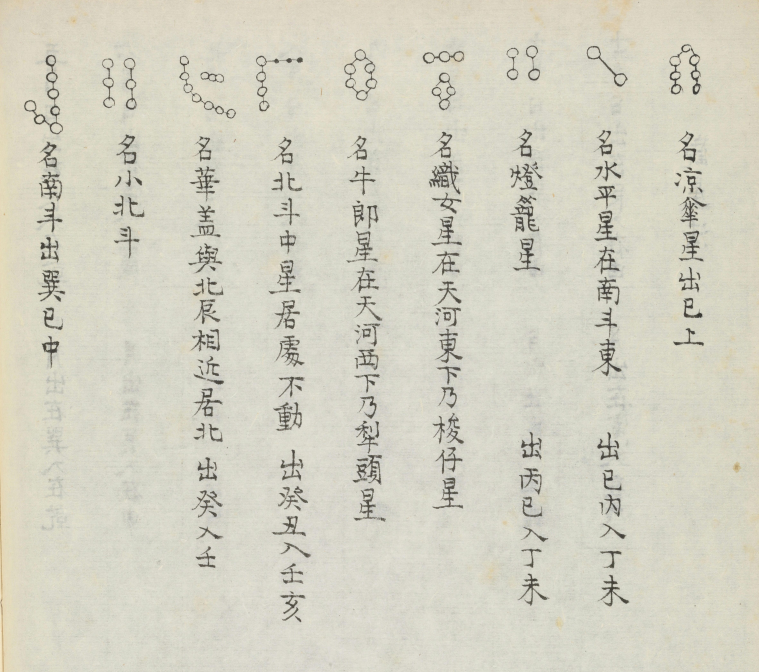 名凉傘星出巳上
名水平星在南斗東　出巳丙入丁未
名燈籠星　出丙巳入丁未
名織女星在天河東下乃梭仔星
名牛郎星在天河西下乃犁頭星
名北斗中星居處不動　出癸丑入壬亥
名華盖與北辰相近居北　出癸入壬
名小北斗
名南斗出巽巳中